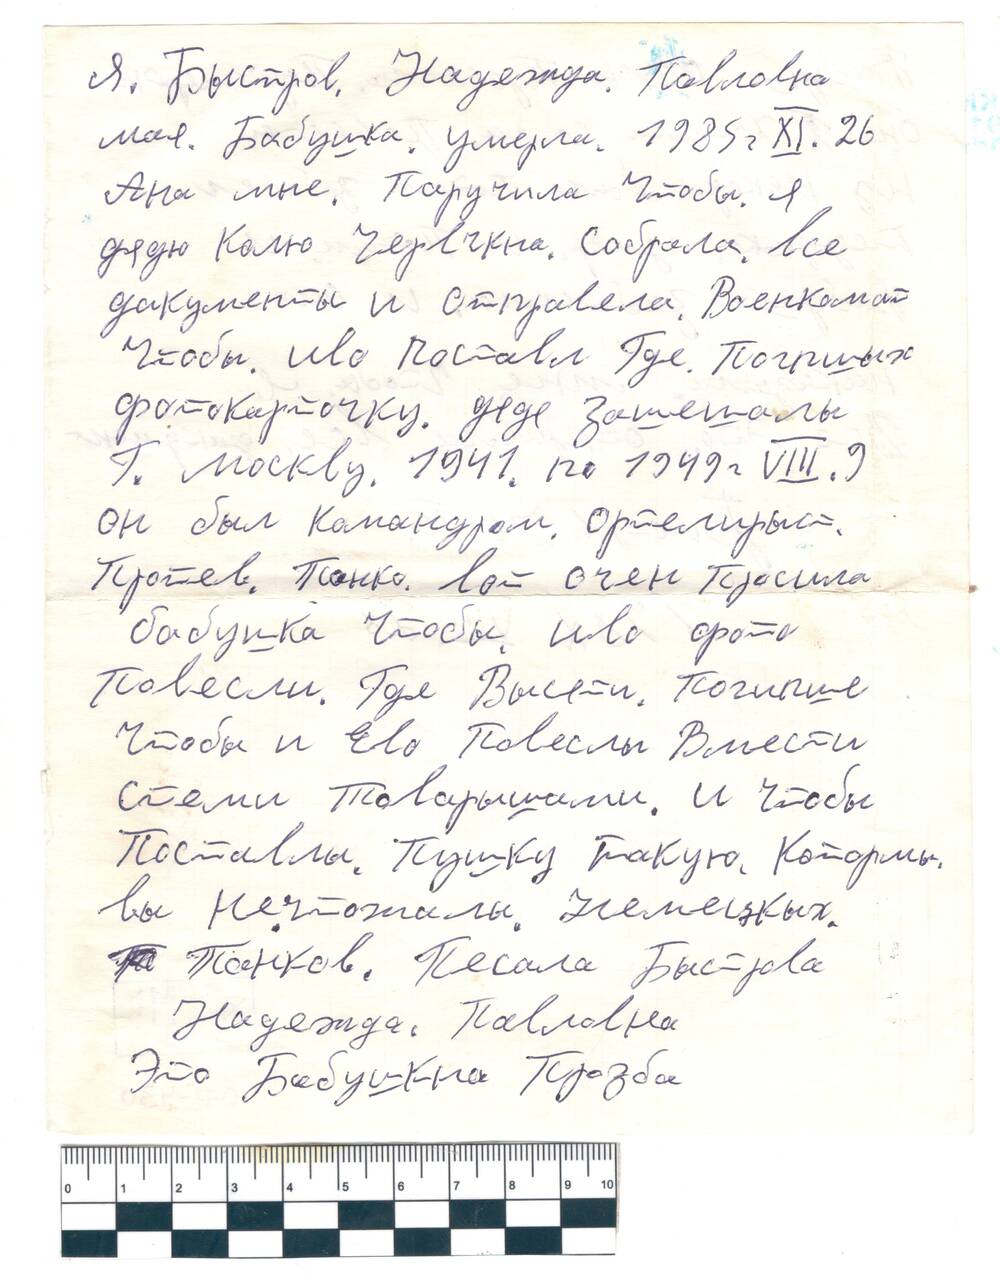 Я. Быстров. Надежда. Павловна
мая. Бабушка. умерла. 1985 г XI. 26
Ана мне. Паручила Чтобы. я
дядю Калю Червчкна. Собрала. все
дакументы и отправела. Военкамат
Чтобы. иво поставл Где. Погпшых
фотокарточку. деде Зашешалы
Г. Москву. 1941. по 1949 г VIII. 9
он был командром. ортелирыст.
Протев. Танко. вот очен прасила
бабушка Чтобы. иво фото
Повесли. Где Высети. Погипше
Чтобы и Ево Повеслы Вмести
стеми товарышами. и Чтобы
Поставлы. Пушку такую. Котормы.
вы Нечтожалы. Немецкых.
Танков. Песала Быстрова
Надежда. Павловна
Это Бабушкна Прозба
0 1 2 3 4 5 6 7 8 9 10